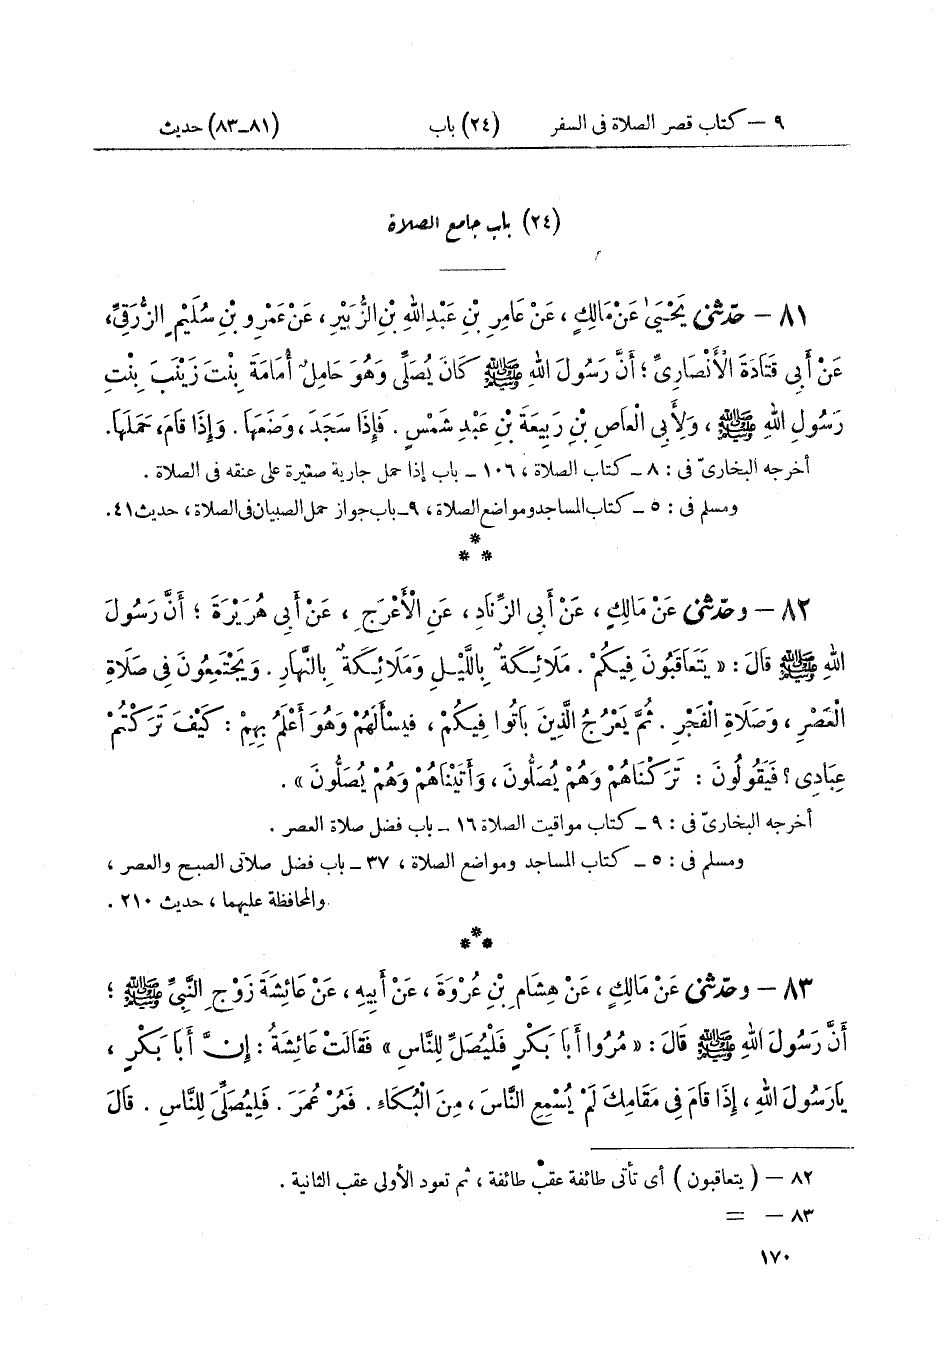 ٩ – كتاب قصر الصلاة فى السفر (٢٤) باب (٨١ــ٨٣) حديث
(٢٤) باب جامع الصلاة
٨١ – حَدّثنى يَحْيَىٰ عَنْ مَالِكٍ، عَنْ عَامِرِ بْنِ عَبْدِ اللهِ بْنِ الزُّبَيْرِ، عَنْ عَمْرِو بْنِ سُلَيْمٍ الزُّرَقِىِّ،
عَنْ أَبِى قَتَادَةَ الْأَنْصَارِىِّ؛ أَنَّ رَسُولَ اللهِ ﷺ كَانَ يُصَلِّى وَهُوَ حَامِلٌ أُمَامَةَ بِنْتَ زَيْنَبَ بِنْتِ
رَسُولِ اللهِ ﷺ، وَلِأَبِى الْعَاصِ بْنِ رَبِيعَةَ بْنِ عَبْدِ شَمْسٍ. فَإِذَا سَجَدَ، وَضَعَهَا. وَإِذَا قَامَ، حَمَلَهَا.
أخرجه البخارىّ فى: ٨ ــ كتاب الصلاة، ١٠٦ ــ باب إذا حمل جارية صغيرة على عنقه فى الصلاة.
ومسلم فى: ٥ ــ كتاب المساجد ومواضع الصلاة، ٩ــ باب جواز حمل الصبيان فى الصلاة، حديث ٤١.
*
* *
٨٢ – وحَدّثنى عَنْ مَالِكٍ، عَنْ أَبِى الزِّنَادِ، عَنِ الْأَعْرَجِ، عَنْ أَبِى هُرَيْرَةَ؛ أَنَّ رَسُولَ
اللهِ ﷺ قَالَ: « يَتَعَاقَبُونَ فِيكُمْ. مَلَائِكَةٌ بِاللَّيْلِ وَمَلَائِكَةٌ بِالنَّهَارِ. وَيَجْتَمِعُونَ فِى صَلَاةِ
الْعَصْرِ، وَصَلَاةِ الْفَجْرِ. ثُمَّ يَعْرُجُ الَّذِينَ بَاتُوا فِيكُمْ، فَيَسْأَلُهُمْ وَهُوَ أَعْلَمُ بِهِمْ: كَيْفَ تَرَكْتُمْ
عِبَادِى؟ فَيَقُولُونَ: تَرَكْنَاهُمْ وَهُمْ يُصَلُّونَ، وَأَتَيْنَاهُمْ وَهُمْ يُصَلُّونَ ».
أخرجه البخارىّ فى: ٩ ــ كتاب مواقيت الصلاة ١٦ ــ باب فضل صلاة العصر.
ومسلم فى: ٥ ــ كتاب المساجد ومواضع الصلاة، ٣٧ ــ باب فضل صلاتى الصبح والعصر،
والمحافظة عليهما، حديث ٢١٠.
*
* *
٨٣ – وحَدّثنى عَنْ مَالِكٍ، عَنْ هِشَامِ بْنِ عُرْوَةَ، عَنْ أَبِيهِ، عَنْ عَائِشَةَ زَوْجِ النَّبِىِّ ﷺ؛
أَنَّ رَسُولَ اللهِ ﷺ قَالَ: « مُرُوا أَبَا بَكْرٍ فَلْيُصَلِّ لِلنَّاسِ » فَقَالَتْ عَائِشَةُ: إِنَّ أَبَا بَكْرٍ،
يَارَسُولَ اللهِ، إِذَا قَامَ فِى مَقَامِكَ لَمْ يُسْمِعِ النَّاسَ، مِنَ الْبُكَاءِ. فَمُرْ عُمَرَ. فَلِيُصَلِّىَ لِلنَّاسِ. قَالَ
٨٢ – ( يتعاقبون ) أى تأتى طائفة عقب طائفة، ثم تعود الأولى عقب الثانية.
٨٣ – =
١٧٠